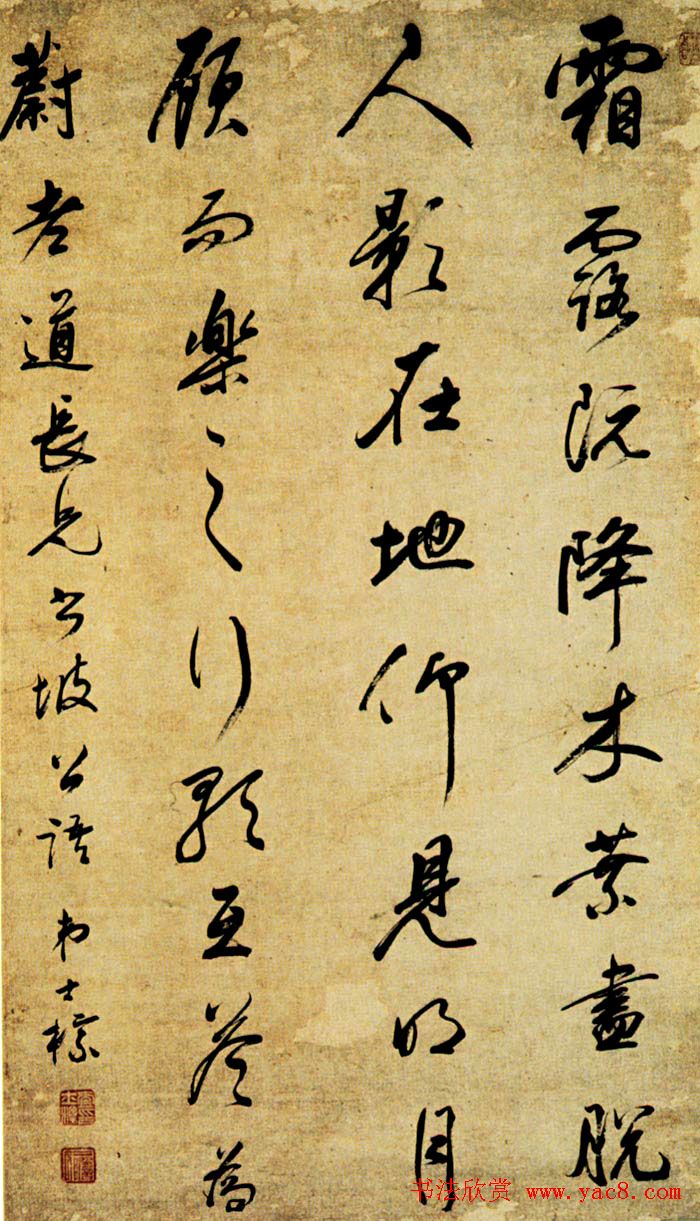 霜露既降木葉盡脫
人影在地仰見明月
顧而樂之行歌互答為
蔚老道長兄書坡公語 弟士標
书法欣赏 www.yac8.com